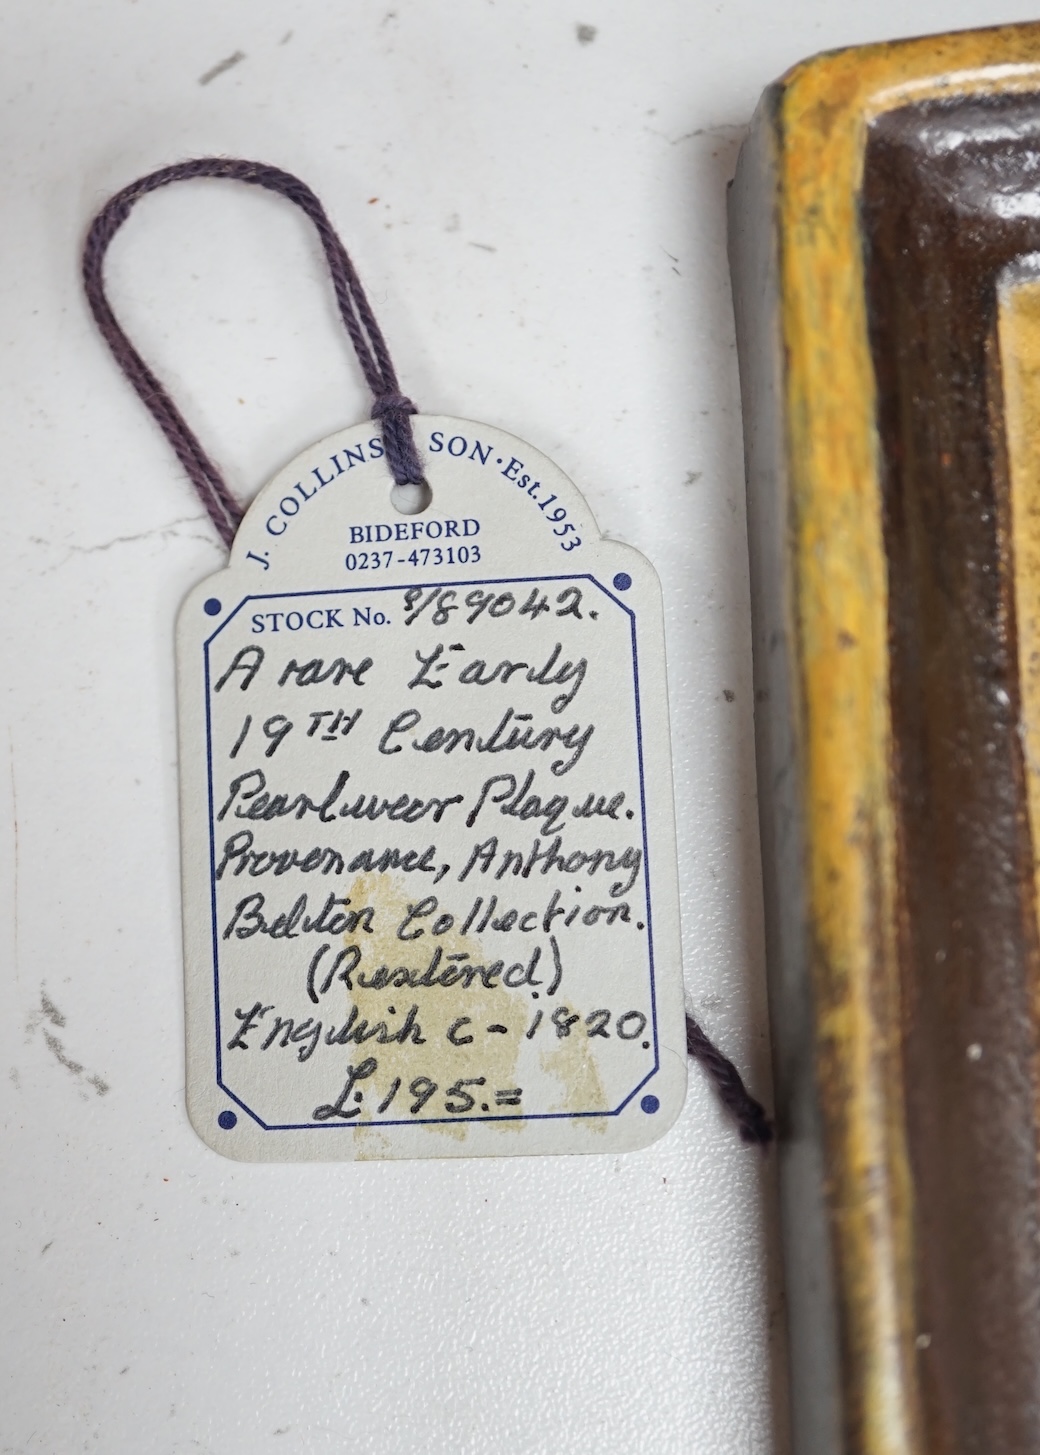 J. COLLINS SON · Est. 1953
BIDEFORD
0237-473103
STOCK No. 9/89042.
A rare Early
19TH Century
Pearlwear Plaque.
Provenance, Anthony
Belton Collection.
(Restored)
English c - 1820.
£195.=